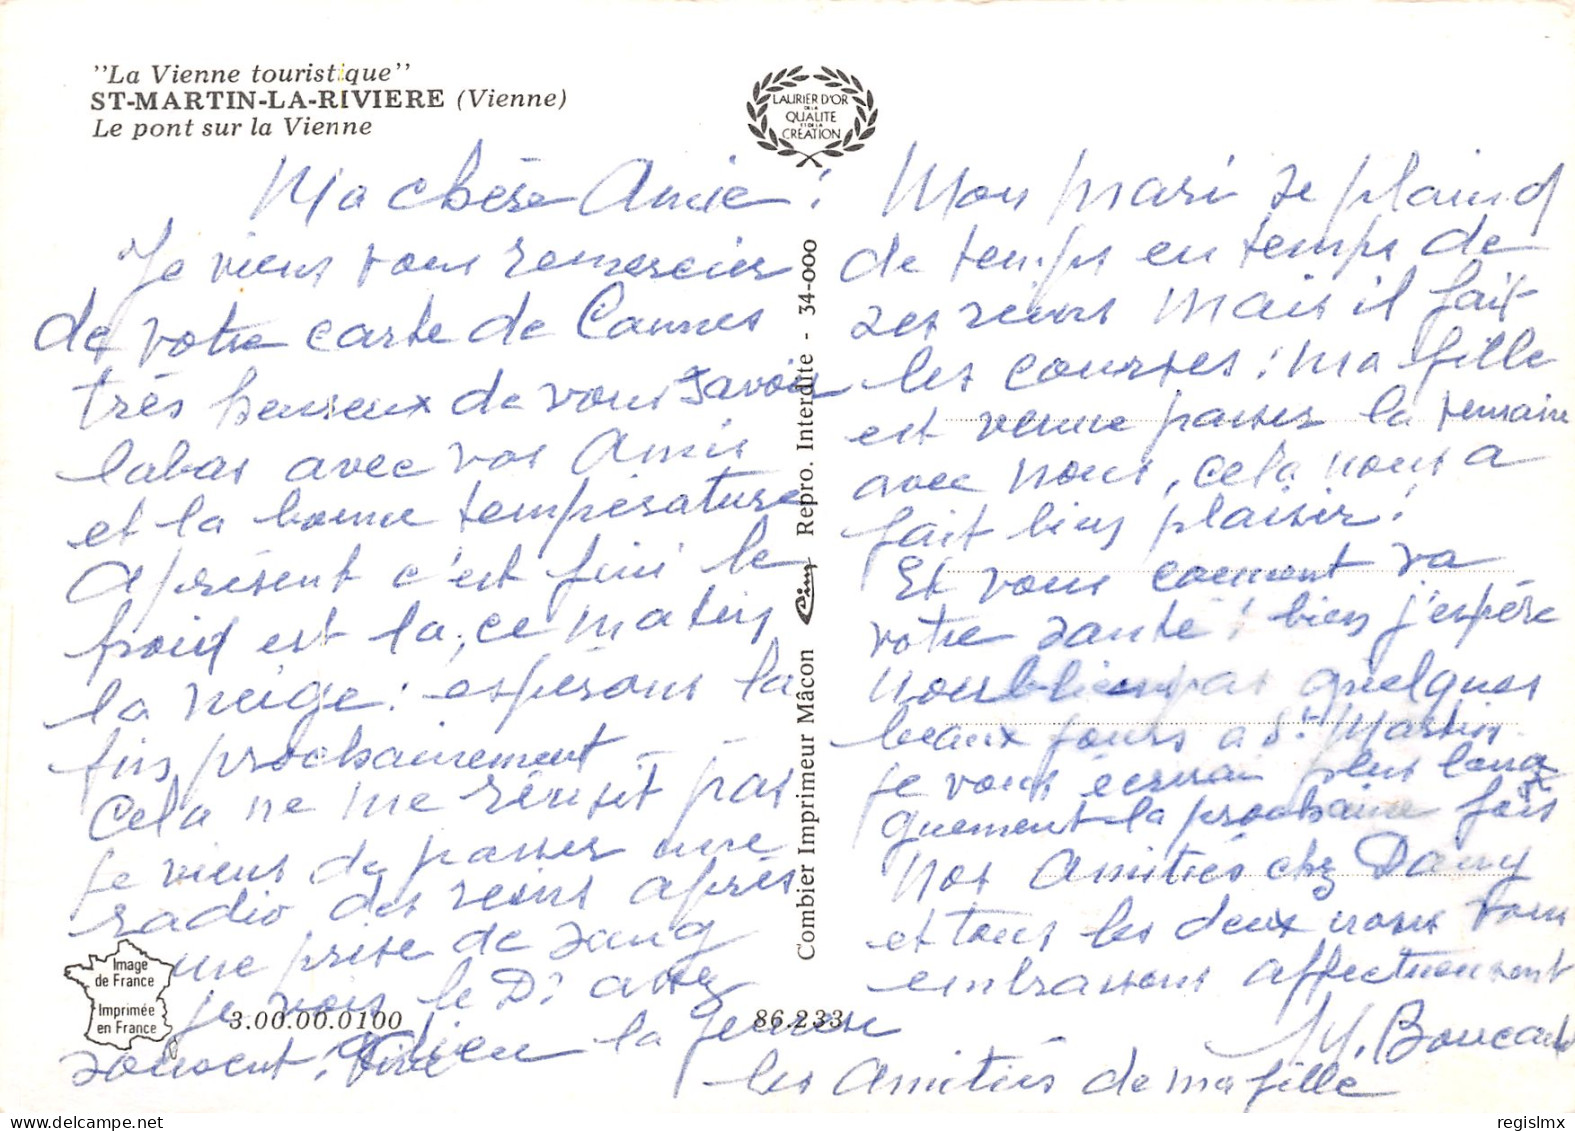 "La Vienne touristique"
ST-MARTIN-LA-RIVIERE (Vienne)
Le pont sur la Vienne
LAURIER D'OR
DE LA
QUALITE
ET DE LA
CREATION
Ma chère Amie !
Je viens vous remercier
de votre carte de Cannes
très heureux de vous savoir
labas avec vos Amis
et la bonne température
aprésent c'est fini le
froid est la, ce matin
la neige : espérons la
fin prochainement
Cela ne me réusit pas
je viens de passer une
radio des reins après
une prise de sang
je vois le Dr assez
souvent. adieu la jeunesse
Mon mari se plaind
de temps en temps de
ses reins mais il fait
les courses : ma fille
est venue passer la semaine
avec nous, cela nous a
fait bien plaisir !
Et vous comment va
votre santé ! bien j'espère
noublienspas quelques
beaux jours a St Martin.
je vous écrirai plus long
guement la prochaine fois
Nos Amitiés chz Dany
et tous les deux nous vous
embrassons affectueusement
M. Boucard
les Amitiés de ma fille
Combier Imprimeur Mâcon Cim Repro. Interdite - 34-000
Image
de France
Imprimée
en France
3.00.00.0100
86.233
regislmx